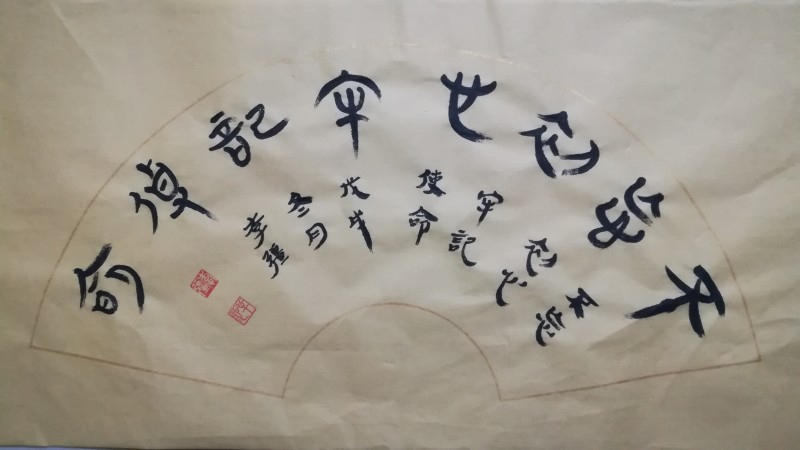 不忘初心牢记使命
不忘
初心
牢記
使命
戊戌
冬月
李疆